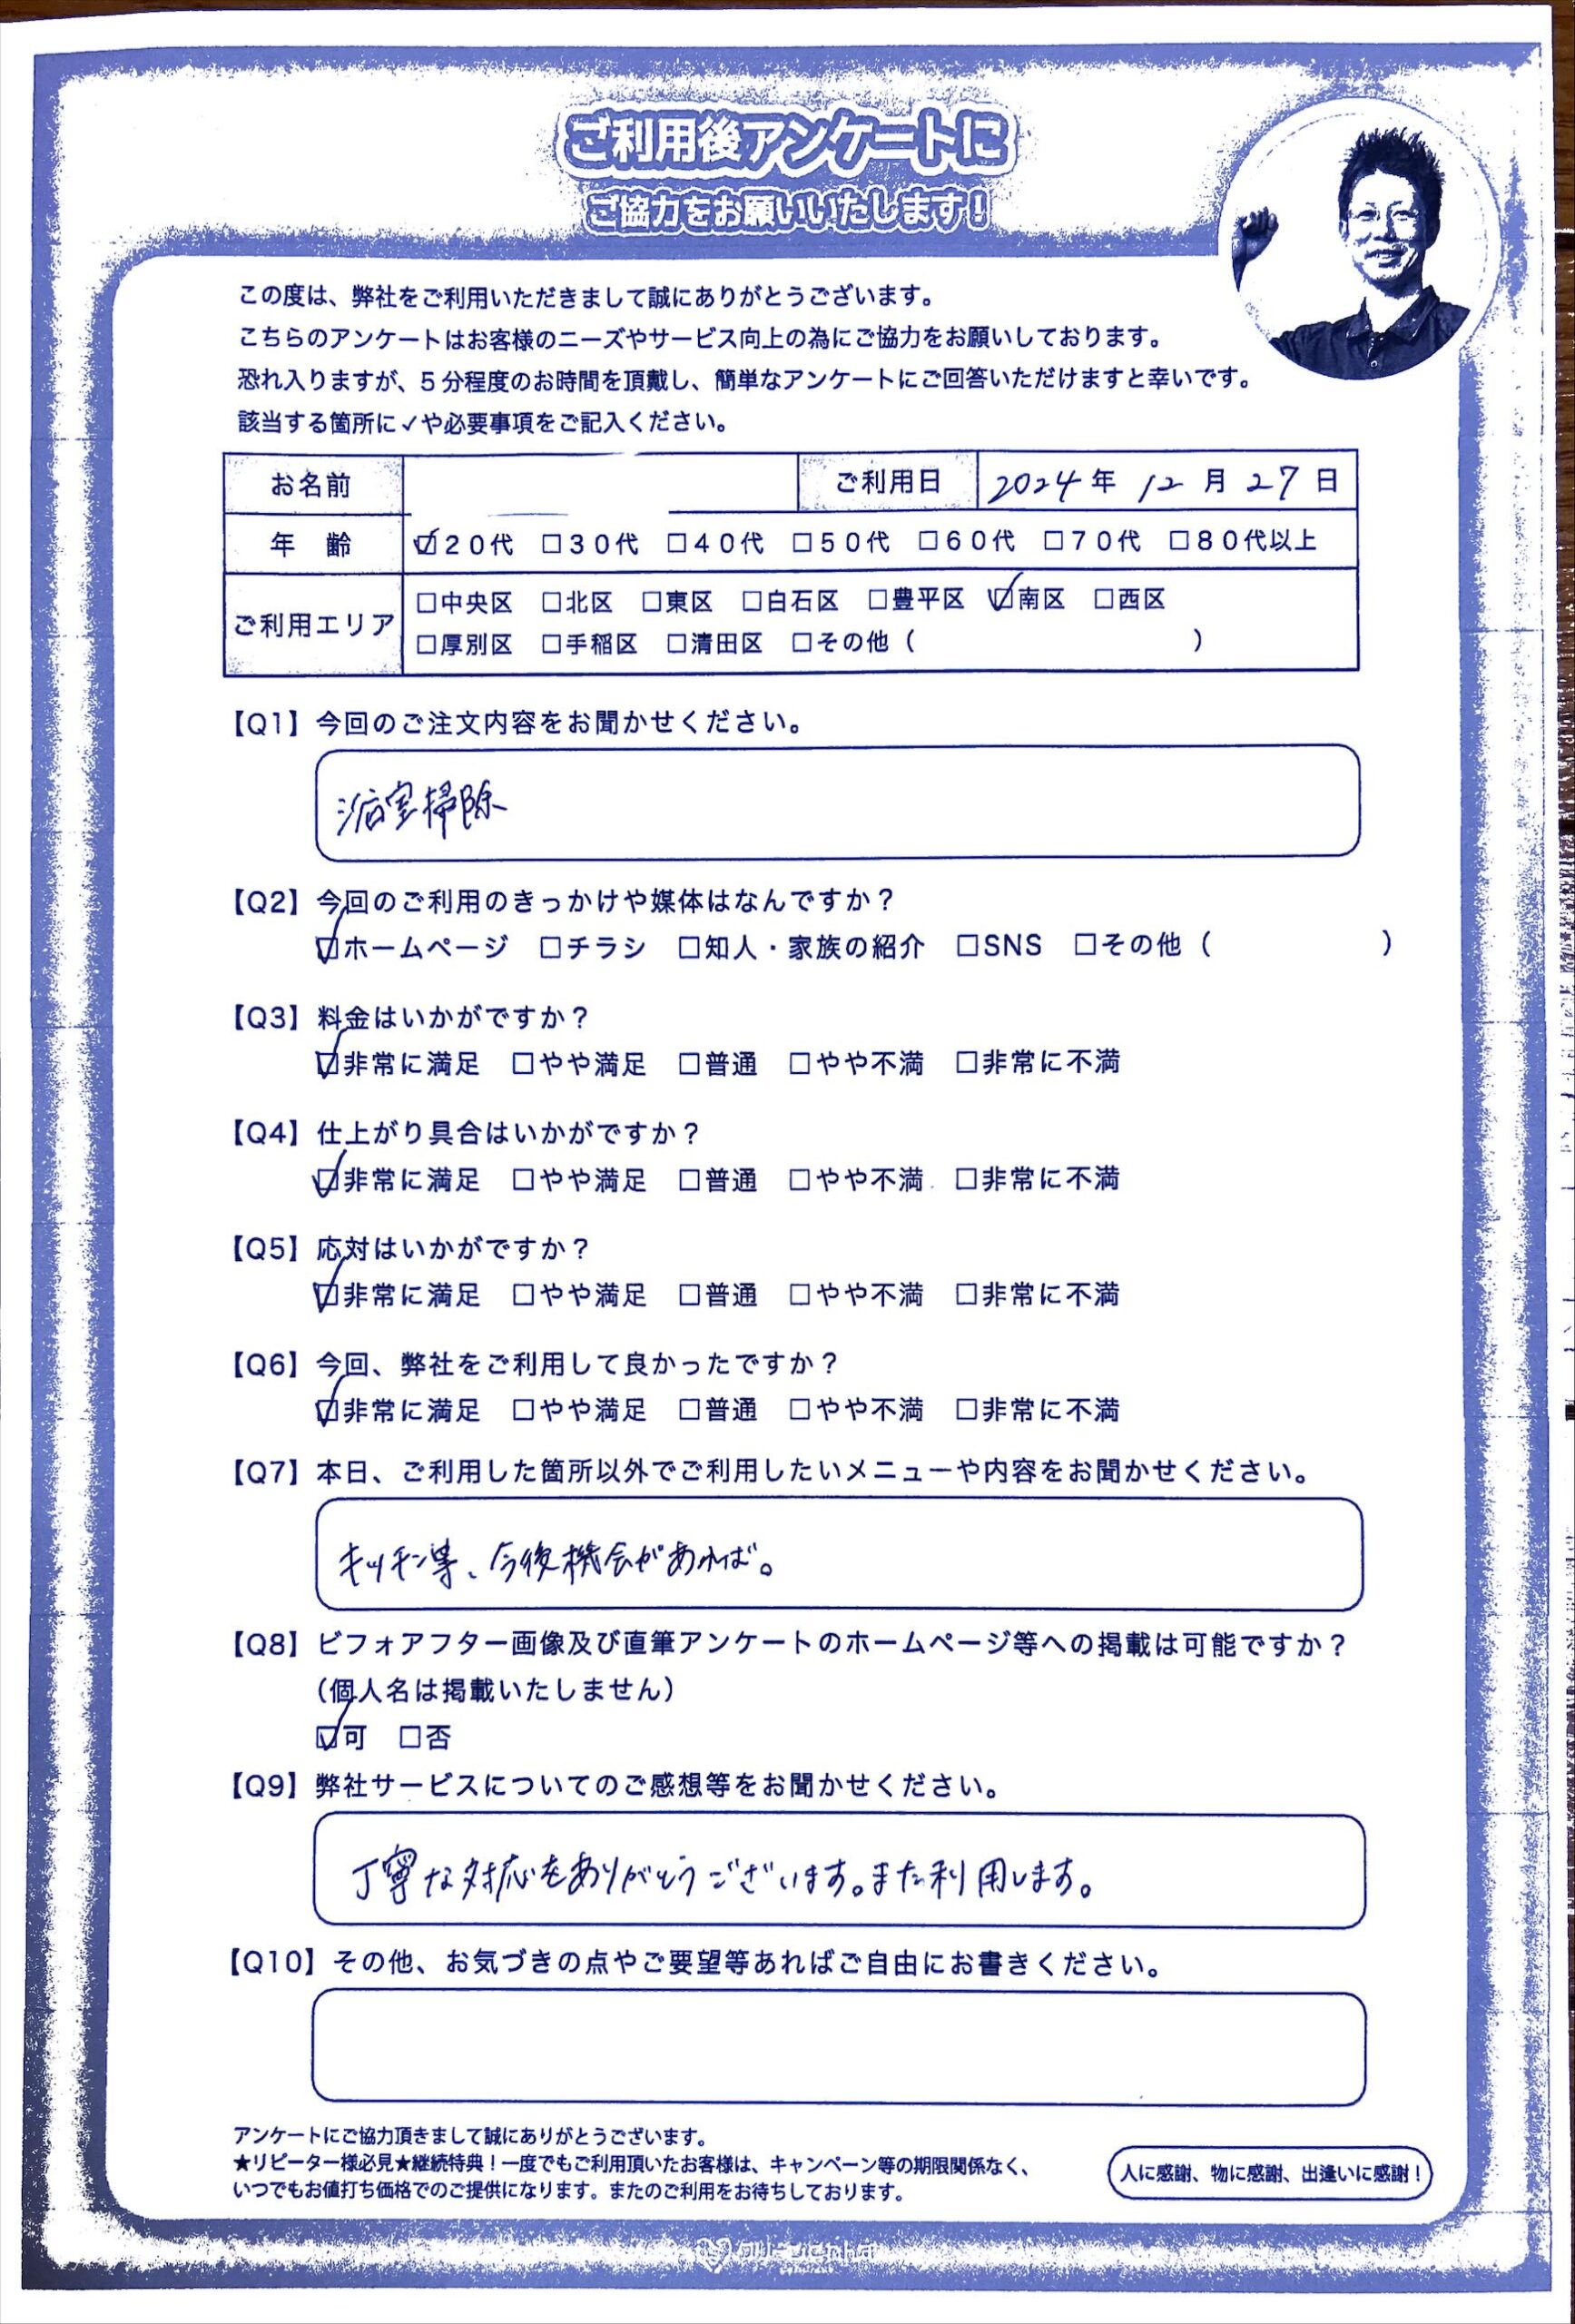 ご利用後アンケートに
ご協力をお願いいたします!
この度は、弊社をご利用いただきまして誠にありがとうございます。
こちらのアンケートはお客様のニーズやサービス向上の為にご協力をお願いしております。
恐れ入りますが、5分程度のお時間を頂戴し、簡単なアンケートにご回答いただけますと幸いです。
該当する箇所に✓や必要事項をご記入ください。
お名前 ご利用日 2024年 12月 27日
年 齢 ☑20代 □30代 □40代 □50代 □60代 □70代 □80代以上
ご利用エリア □中央区 □北区 □東区 □白石区 □豊平区 ☑南区 □西区
□厚別区 □手稲区 □清田区 □その他( )
【Q1】今回のご注文内容をお聞かせください。
浴室掃除
【Q2】今回のご利用のきっかけや媒体はなんですか?
☑ホームページ □チラシ □知人・家族の紹介 □SNS □その他( )
【Q3】料金はいかがですか?
☑非常に満足 □やや満足 □普通 □やや不満 □非常に不満
【Q4】仕上がり具合はいかがですか?
☑非常に満足 □やや満足 □普通 □やや不満 □非常に不満
【Q5】応対はいかがですか?
☑非常に満足 □やや満足 □普通 □やや不満 □非常に不満
【Q6】今回、弊社をご利用して良かったですか?
☑非常に満足 □やや満足 □普通 □やや不満 □非常に不満
【Q7】本日、ご利用した箇所以外でご利用したいメニューや内容をお聞かせください。
キッチン等、今後機会があれば。
【Q8】ビフォアフター画像及び直筆アンケートのホームページ等への掲載は可能ですか?
(個人名は掲載いたしません)
☑可 □否
【Q9】弊社サービスについてのご感想等をお聞かせください。
丁寧な対応をありがとうございます。また利用します。
【Q10】その他、お気づきの点やご要望等あればご自由にお書きください。
アンケートにご協力頂きまして誠にありがとうございます。
★リピーター様必見★継続特典!一度でもご利用頂いたお客様は、キャンペーン等の期限関係なく、
いつでもお値打ち価格でのご提供になります。またのご利用をお待ちしております。
人に感謝、物に感謝、出逢いに感謝!